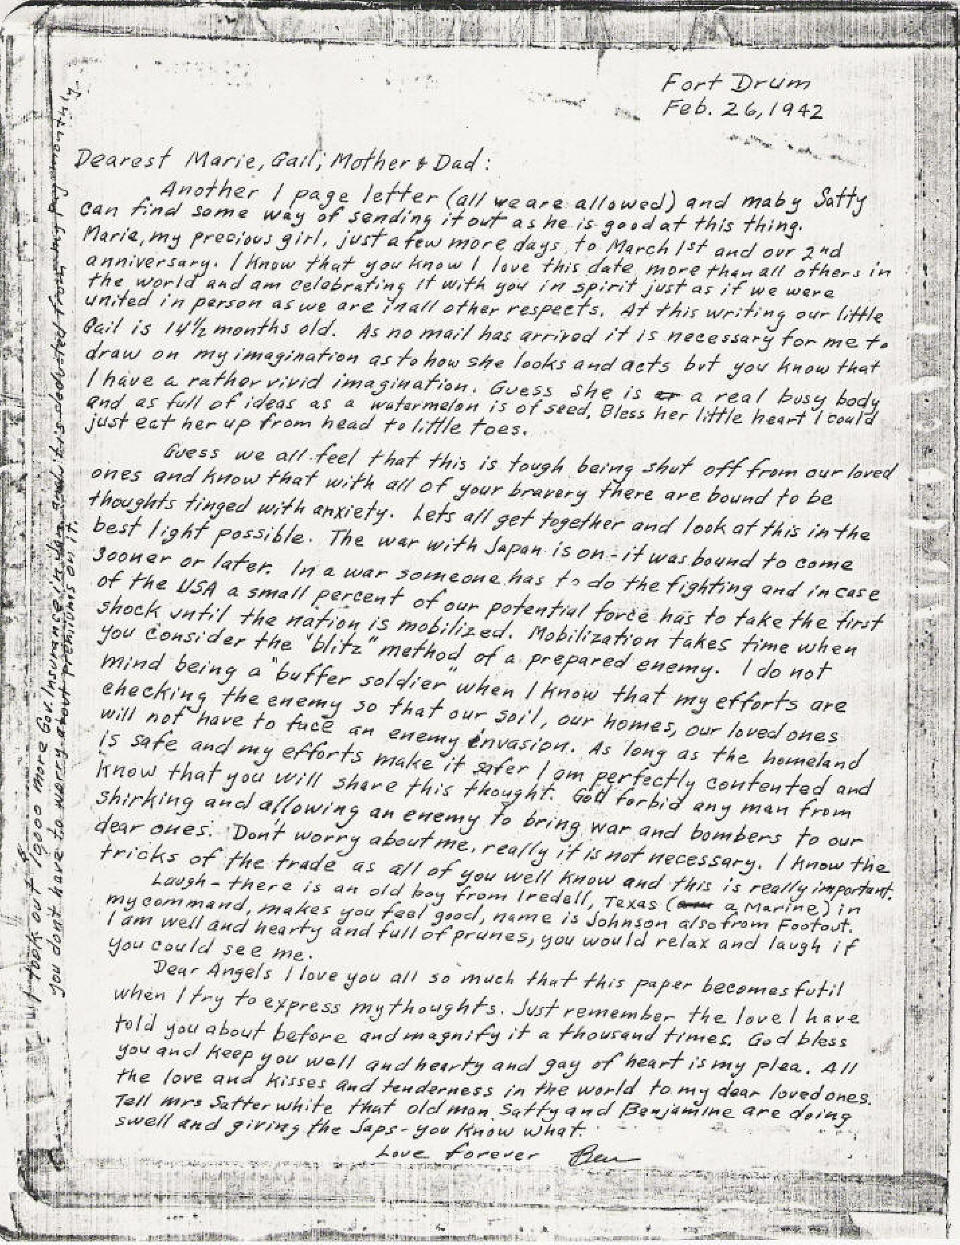 Fort Drum
Feb. 26, 1942
Dearest Marie, Gail, Mother & Dad:
Another 1 page letter (all we are allowed) and maby Satty
can find some way of sending it out as he is good at this thing.
Marie, my precious girl, just a few more days to March 1st and our 2nd
anniversary. I know that you know I love this date more than all others in
the world and am celebrating it with you in spirit just as if we were
united in person as we are in all other respects. At this writing our little
Gail is 14½ months old. As no mail has arrived it is necessary for me to
draw on my imagination as to how she looks and acts but you know that
I have a rather vivid imagination. Guess she is a real busy body
and as full of ideas as a watermelon is of seed. Bless her little heart I could
just eat her up from head to little toes.
Guess we all feel that this is tough being shut off from our loved
ones and know that with all of your bravery there are bound to be
thoughts tinged with anxiety. Lets all get together and look at this in the
best light possible. The war with Japan is on - it was bound to come
sooner or later. In a war someone has to do the fighting and in case
of the USA a small percent of our potential force has to take the first
shock until the nation is mobilized. Mobilization takes time when
you consider the "blitz" method of a prepared enemy. I do not
mind being a "buffer soldier" when I know that my efforts are
checking the enemy so that our soil, our homes, our loved ones
will not have to face an enemy invasion. As long as the homeland
is safe and my efforts make it safer I am perfectly contented and
know that you will share this thought. God forbid any man from
shirking and allowing an enemy to bring war and bombers to our
dear ones. Don't worry about me, really it is not necessary. I know the
tricks of the trade as all of you well know and this is really important.
Laugh - there is an old boy from Iredell, Texas ( a Marine) in
my command, makes you feel good, name is Johnson also from Footout.
I am well and hearty and full of prunes, you would relax and laugh if
you could see me.
Dear Angels I love you all so much that this paper becomes futil
when I try to express my thoughts. Just remember the love I have
told you about before and magnify it a thousand times. God bless
you and keep you well and hearty and gay of heart is my plea. All
the love and kisses and tenderness in the world to my dear loved ones.
Tell Mrs Satterwhite that old man Satty and Benjamine are doing
swell and giving the Japs - you know what.
Love forever Ben
I took out 10,000 more Gov. Insurance in Jan and it is deducted from my pay monthly
you dont have to worry about premiums on it.